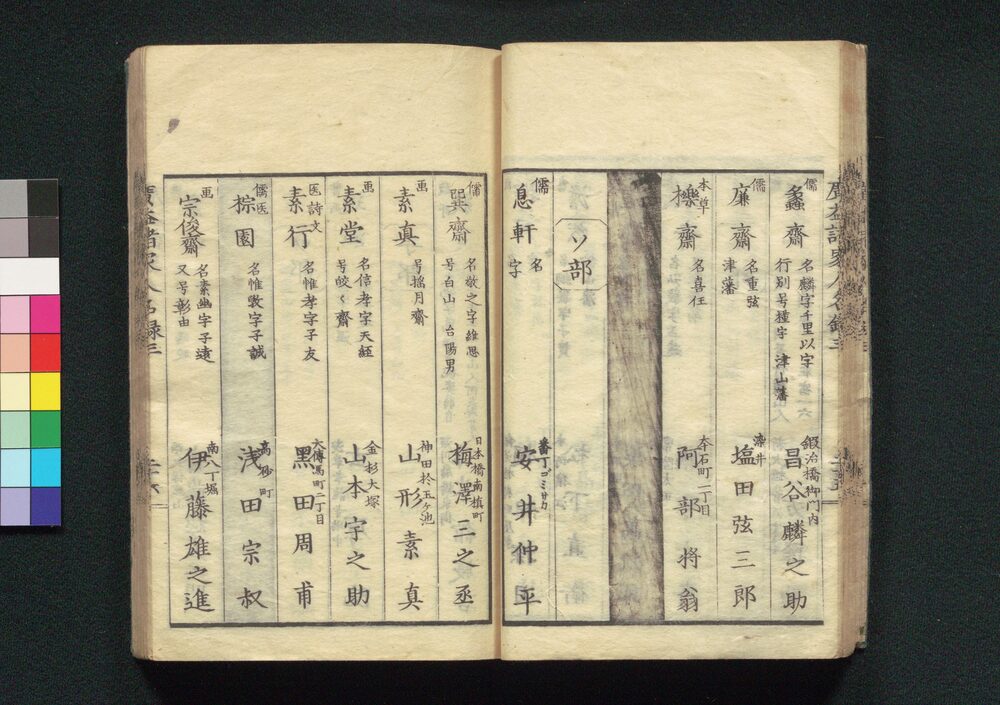 儒
螽齋
名麟字千里以字
行別号種字 津山藩
鍛冶橋御門内
昌谷麟之助
儒
廉齋
名重弦
津藩
染井
塩田弦三郎
本草
櫟齋
名喜任
本石町二丁目
阿部将翁
ソ部
儒
息軒
名
字
番丁ゴミサカ
安井仲平
儒
巽齋
名敬之字維思
号白山 台陽男
日本橋南槙町
梅澤三之丞
画
素真
号揺月齋
神田於玉ヶ池
山形素真
画
素堂
名信孝字天経
号皎々齋
金杉大塚
山本字之助
医詩文
素行
名惟孝字子友
大傳馬町二丁目
黒田周甫
儒医
棕園
名惟斅字子誠
高砂町
浅田宗叔
画
宗俊齋
名素幽字子遠
又号彰由
南八丁堀
伊藤雄之進